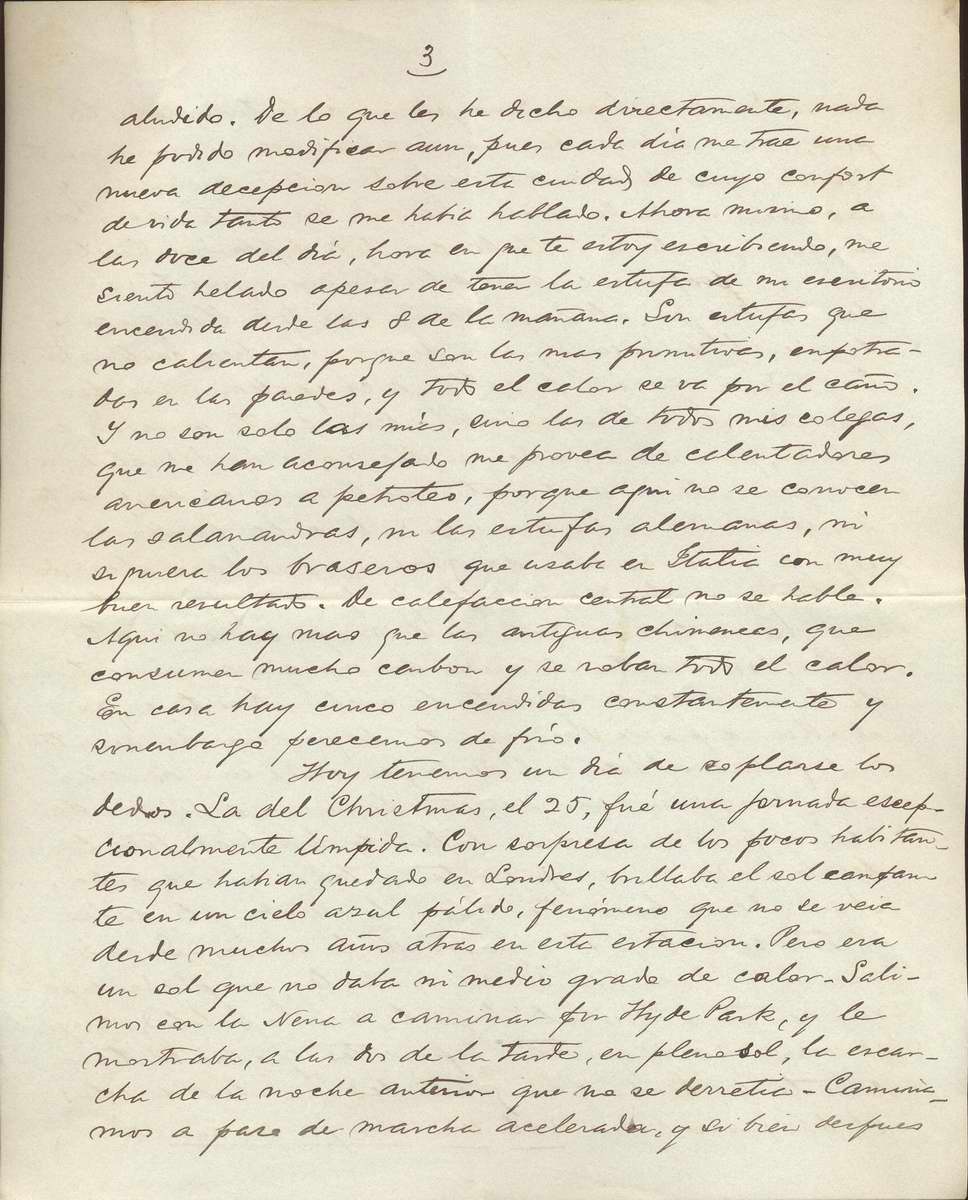 3
aludido. De lo que les he dicho directamente, nada
he podido modificar aun, pues cada día me trae una
nueva decepcion sobre esta ciudad, de cuyo confort
de vida tanto se me habia hablado. Ahora mismo, a
las doce del día, hora en que te estoy escribiendo, me
siento helado apesar de tener la estufa de mi escritorio
encendida desde las 8 de la mañana. Son estufas que
no calientan, porque son las mas primitivas, empotra-
das en las paredes, y todo el calor se va por el caño.
Y no son solo las mías, sino las de todos mis colegas,
que me han aconsejado me provea de calentadores
americanos a petroleo, porque aqui no se conocen
las salamandras, ni las estufas alemanas, ni
siquiera los braseros que usaba en Italia con muy
buen resultado. De calefaccion central no se hable.
Aqui no hay mas que las antiguas chimeneas, que
consumen mucho carbon y se roban todo el calor.
En casa hay cinco encendidas constantemente y
sinembargo perecemos de frío.
Hoy tenemos un día de soplarse los
dedos. La del Christmas, el 25, fué una jornada escep-
cionalmente límpida. Con sorpresa de los pocos habitan-
tes que habian quedado en Londres, brillaba el sol
te en un cielo azul pálido, fenómeno que no se veia
desde muchos años atras en esta estacion. Pero era
un sol que no daba ni medio grado de calor - Sali-
mos con la Nena a caminar por Hyde Park, y le
mostraba, a las dos de la tarde, en pleno sol, la escar-
cha de la noche anterior que no se derretia - Camina-
mos a paso de marcha acelerada, y si bien despues